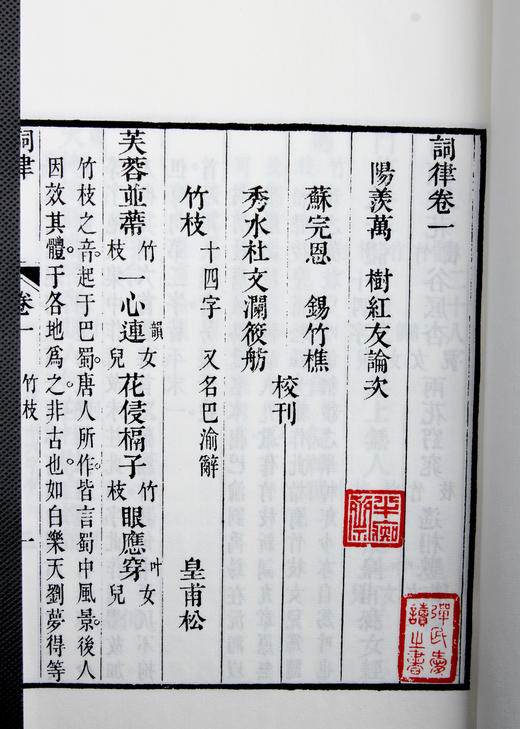 詞律卷一
陽羨萬 樹紅友論次
蘇完恩 錫竹樵
秀水杜文瀾筱舫
校刊
竹枝 十四字 又名巴渝辭 皇甫松
芙蓉並蒂 竹枝 一心連 韻 女兒 花侵槅子 竹枝 眼應穿 叶 女兒
竹枝之音。起于巴蜀。唐人所作。皆言蜀中風景。後人
因效其體。于各地爲之。非古也。如白樂天劉夢得等
詞律 卷一 竹枝 一
彈氏壽讀之書